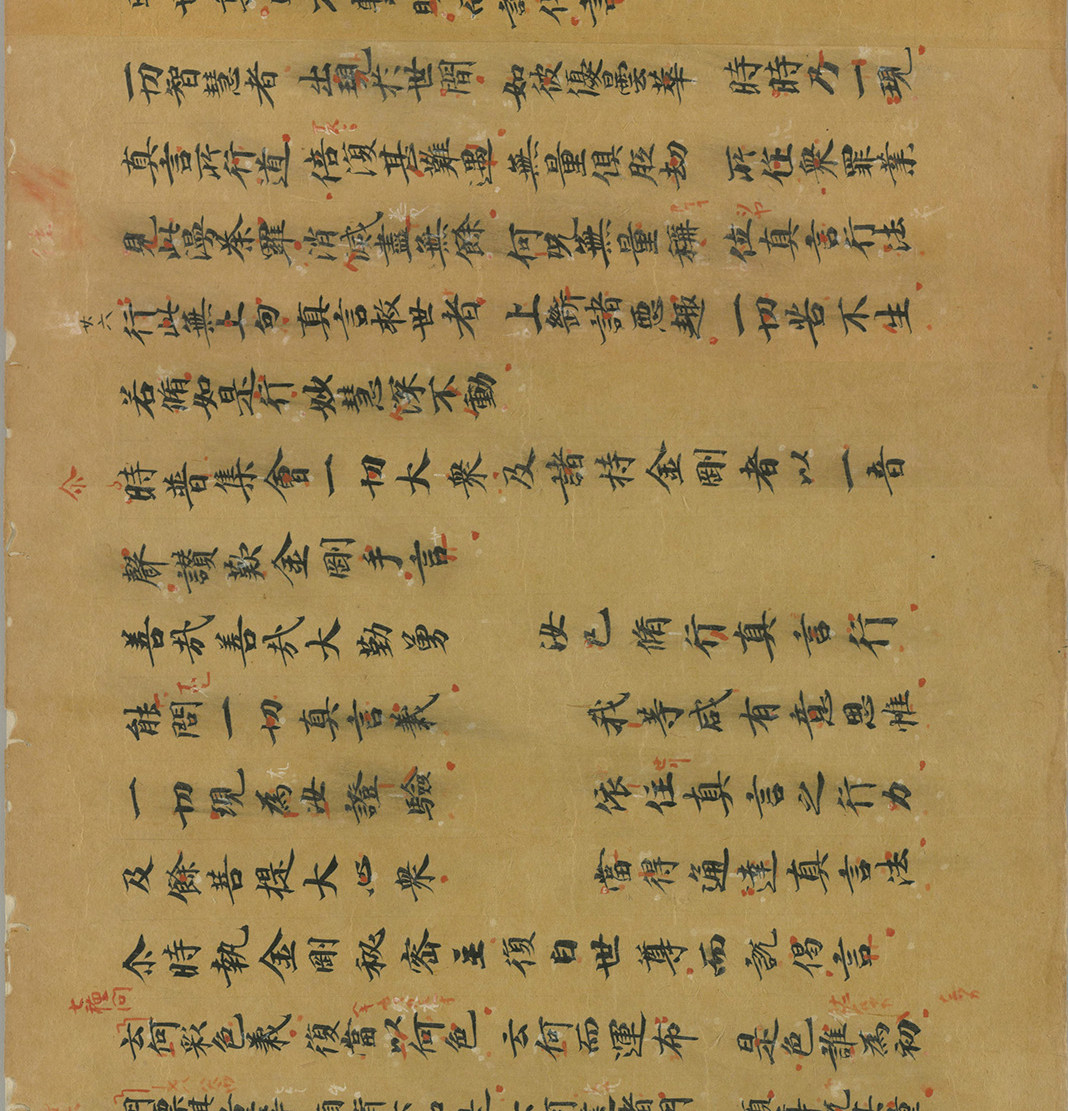 一切智慧者 出現於世間 如彼優曇華 時時乃一現
真言所行道 倍復甚難遇 無量俱胝劫 所作衆罪業
見此漫荼羅 消滅盡無餘 何況無量稱 住真言行法
廿六
行此無上句 真言救世者 止斷諸惡趣 一切苦不生
若脩如是行 妙慧深不動
時普集會一切大衆及諸持金剛者以一音
聲讃歎金剛手言
善哉善哉大勤勇 汝已脩行真言行
能問一切真言義 我等咸有意思惟
一切現為汝證驗 依住真言之行力
及餘菩提大心衆 當得通達真言法
尒時執金剛秘密主復白世尊而説偈言
云何彩色義 復當以何色 云何而運布 是色誰為初